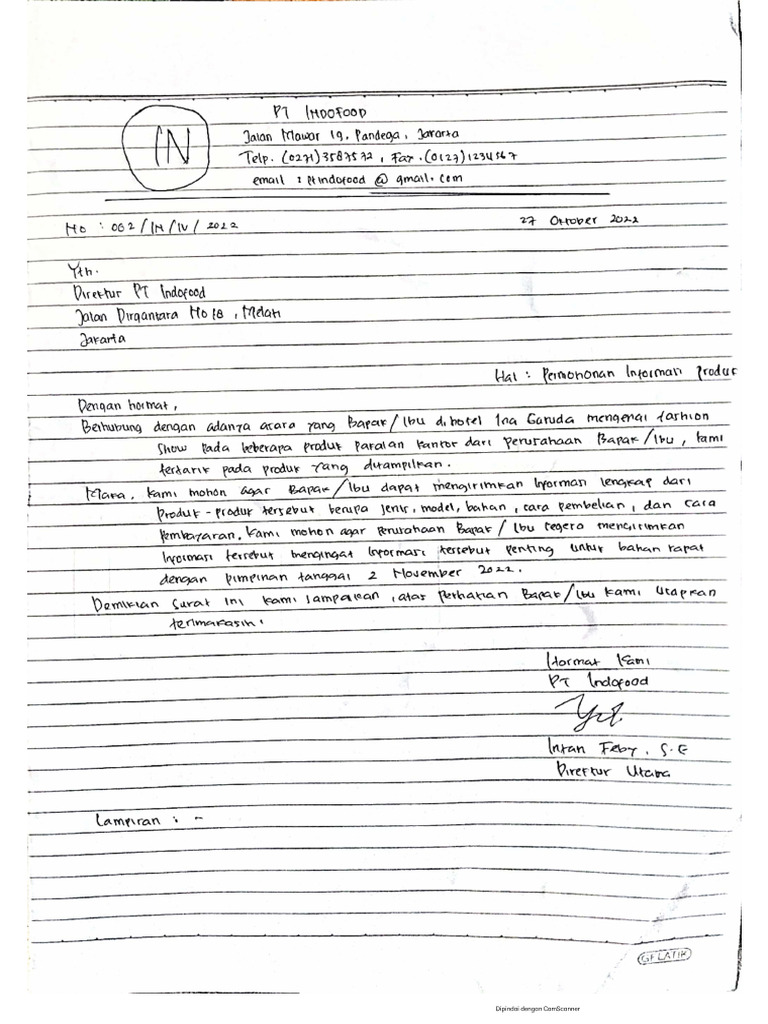 PT INDOFOOD
IN
Jalan Mawar 19, Pandega, Jakarta
Telp. (0271)3587572, Fax.(0127)1234567
email : ptindofood @ gmail.com
No : 002/IN/IV/2022
27 Oktober 2022
Yth.
Direktur PT Indofood
Jalan Dirgantara No 18, Melati
Jakarta
Hal : Permohonan Informasi Produk
Dengan hormat,
Berhubung dengan adanya acara yang Bapak/Ibu dihotel Ina Garuda mengenai fashion
show pada beberapa produk pakaian kantor dari perusahaan Bapak/Ibu, kami
tertarik pada produk yang ditampilkan.
Maka, kami mohon agar Bapak/Ibu dapat mengirimkan informasi lengkap dari
produk-produk tersebut berupa jenis, model, bahan, cara pembelian, dan cara
pembayaran. Kami mohon agar perusahaan Bapak/Ibu segera mengirimkan
informasi tersebut mengingat informasi tersebut penting untuk bahan rapat
dengan pimpinan tanggal 2 November 2022.
Demikian surat ini kami sampaikan, atas perhatian Bapak/Ibu kami ucapkan
terimakasih.
Hormat kami
PT Indofood
Intan Feby, S.E
Direktur Utama
Lampiran : -
GELATIK
Dipindai dengan CamScanner